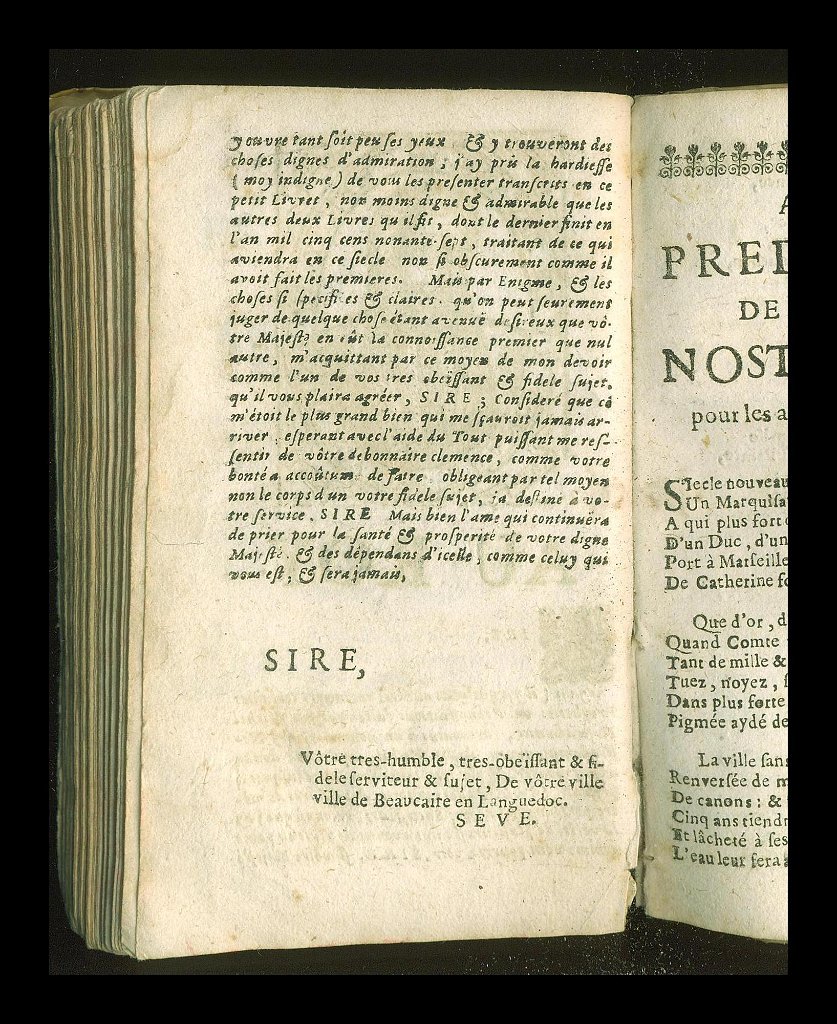 y ouvre tant soit peu ses yeux, & y trouveront des
choses dignes d'admiration, j'ay pris la hardiesse
( moy indigne ) de vous les presenter transcrits en ce
petit Livret, non moins digne & admirable que les
autres deux Livres qu il fit, dont le dernier finit en
l'an mil cinq cens nonante-sept, traitant de ce qui
aviendra en ce siecle non si obscurement comme il
avoit fait les premieres. Mais par Enigme, & les
choses si specifi es & claires. qu'on peut seurement
juger de quelque chose étant avenuë desireux que vô-
tre Majesté en eût la connoissance premier que nul
autre, m'acquittant par ce moyen de mon devoir
comme l'un de vos tres obeïssant & fidele sujet,
qu'il vous plaira agréer, SIRE; Consideré que ce
m'étoit le plus grand bien qui me sçauroit jamais ar-
river, esperant avec l'aide du Tout puissant me res-
sentir de vôtre debonnaire clemence, comme votre
bonté a accoûtumé de faire obligeant par tel moyen
non le corps d un votre fidele sujet, ja destiné à vo-
tre service, SIRE Mais bien l'ame qui continuëra
de prier pour la santé & prosperité de votre digne
Majesté, & des dépendans d'icelle, comme celuy qui
vous est, & sera jamais,
SIRE,
Vôtre tres-humble, tres-obeïssant & fi-
dele serviteur & sujet, De vôtre ville
ville de Beaucaire en Languedoc.
SEVE.
A
PRED
DE
NOST
pour les a
Siecle nouveau
Un Marquisa
A qui plus fort
D'un Duc, d'un
Port à Marseille
De Catherine fo
Que d'or, d
Quand Comte
Tant de mille &
Tuez, noyez,
Dans plus forte
Pigmée aydé de
La ville sans
Renversée de m
De canons: &
Cinq ans tiendr
Et lâcheté à ses
L'eau leur fera